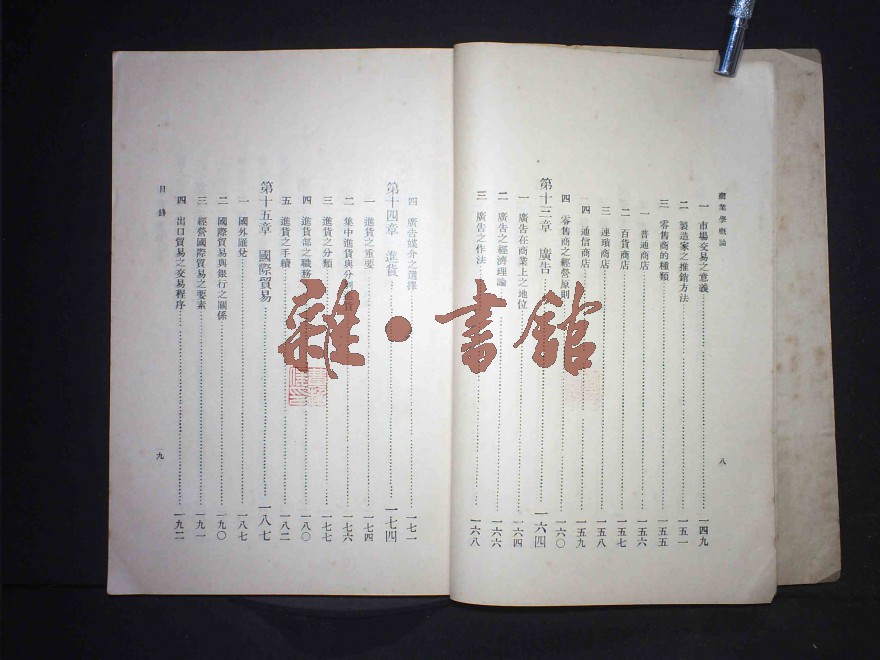 商業學概論
一 市場交易之意義 一四九
二 製造家之推銷方法 一五一
三 零售商的種類 一五五
一 普通商店 一五六
二 百貨商店 一五七
三 連瑣商店 一五八
四 通信商店 一五九
四 零售商之經營原則 一六〇
第十三章 廣告 一六四
一 廣告在商業上之地位 一六四
二 廣告之經濟理論 一六六
三 廣告之作法 一六八
八
四 廣告媒介之選擇 一七一
第十四章 進貨 一七四
一 進貨之重要 一七四
二 集中進貨與分 一七六
三 進貨之分類 一七七
四 進貨部之職務 一八〇
五 進貨之手續 一八二
第十五章 國際貿易 一八七
一 國外匯兌 一八七
二 國際貿易與銀行之關係 一九〇
三 經營國際貿易之要素 一九一
四 出口貿易之交易程序 一九二
目錄
九
雜·書館